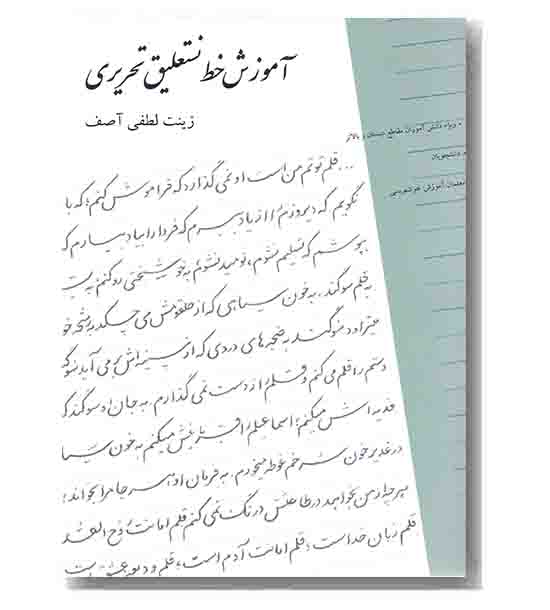 آموزش خط نستعلیق تحریری
زینت لطفی آصف
• ویژه دانش آموزان مقاطع دبستان و بالاتر
• دانشجویان
معلمان آموزش خوشنویسی
... قلم توتم من است او نمی گذارد که فراموش کنم؛ که با
بگویم که دیروزم را از یاد ببرم که فردا را بیاد بیارم که
بپوشم که تسلیم نشوم، نومید نشوم به خوشبختی رو کنم به
به قلم سوگند. به خون سیاهی که از حلقومش می چکد به رشحه خو
میتراود سوگند به ضجه های دردی که از سینه اش برمی آید سوگ
دستم را قلم می کنم و قلمم را از دست نمی گذارم. به جان او سوگند که
فدیه اش میکنم؛ اسماعیلم را قربانیش میکنم به خون سیا
در غدیر خون سرخم غوطه میخورم. به فرمان او هر جا مرا بخواند؛
هر چه از من بخواهد در طاعتش درنگ نمی کنم قلم امانت روح القد
قلم زبان خداست؛ قلم امانت آدم است؛ قلم ودیعه عشق است